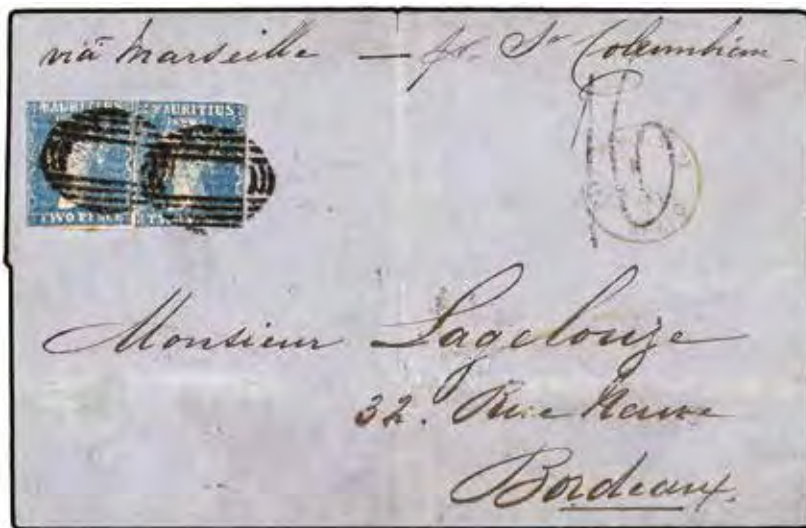 viâ Marseille — pr. Str Columbian
MAURITIUS MAURITIUS
TWO PENCE
16
Monsieur Lagelouze
32. Rue Neuve
Bordeaux.